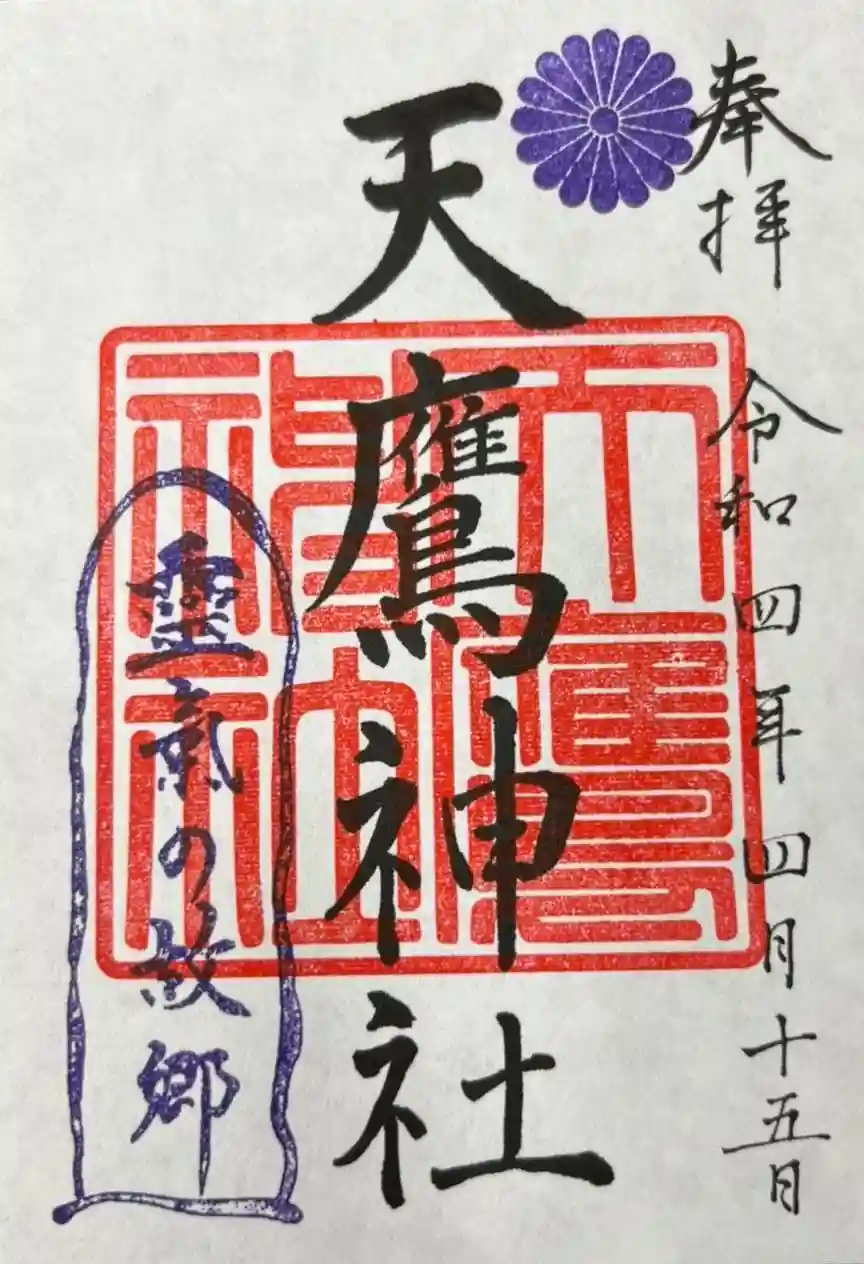 奉拝
令和四年四月十五日
天鷹神社
天鷹神社
靈氣の故郷